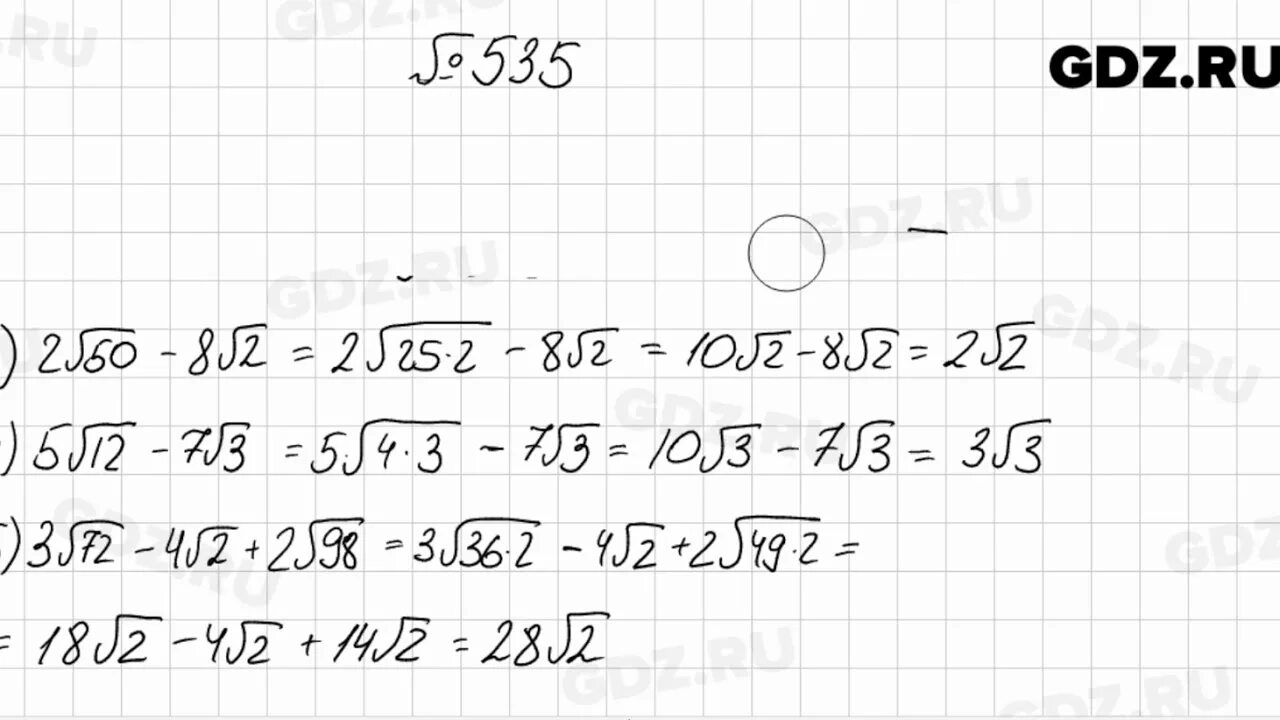 №535
GDZ.RU
) 2√50 - 8√2 = 2√25·2 - 8√2 = 10√2 - 8√2 = 2√2
) 5√12 - 7√3 = 5√4·3 - 7√3 = 10√3 - 7√3 = 3√3
) 3√72 - 4√2 + 2√98 = 3√36·2 - 4√2 + 2√49·2 =
= 18√2 - 4√2 + 14√2 = 28√2